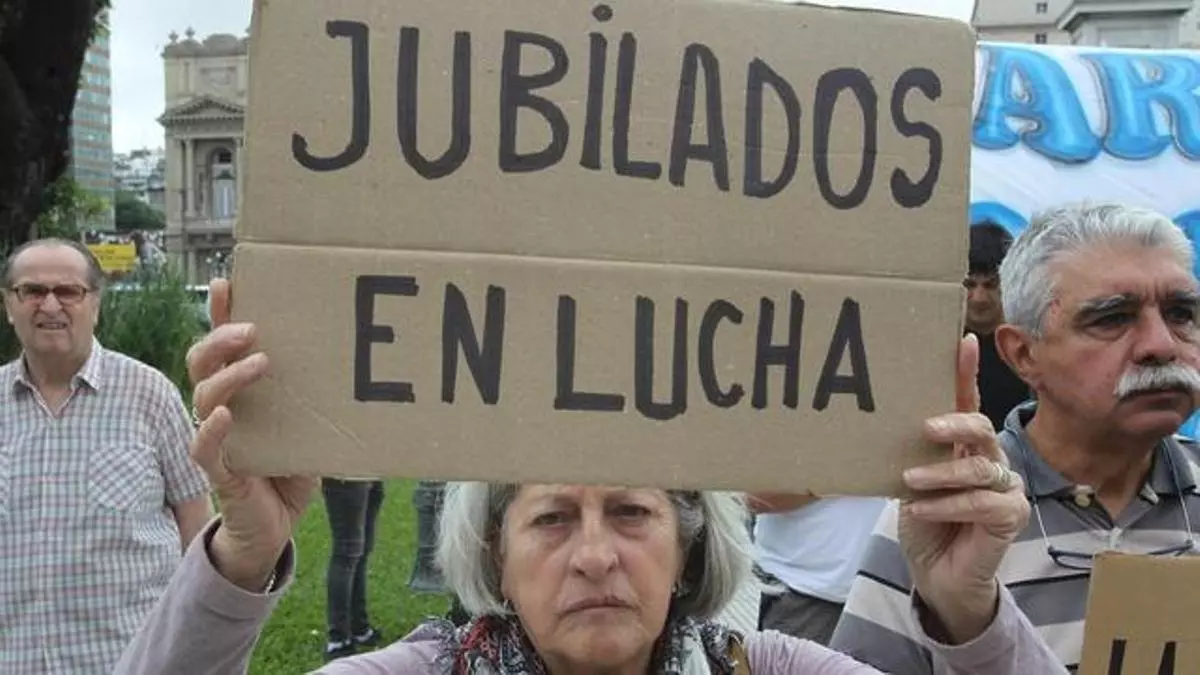 JUBiLADOS
EN LUCHA
AR